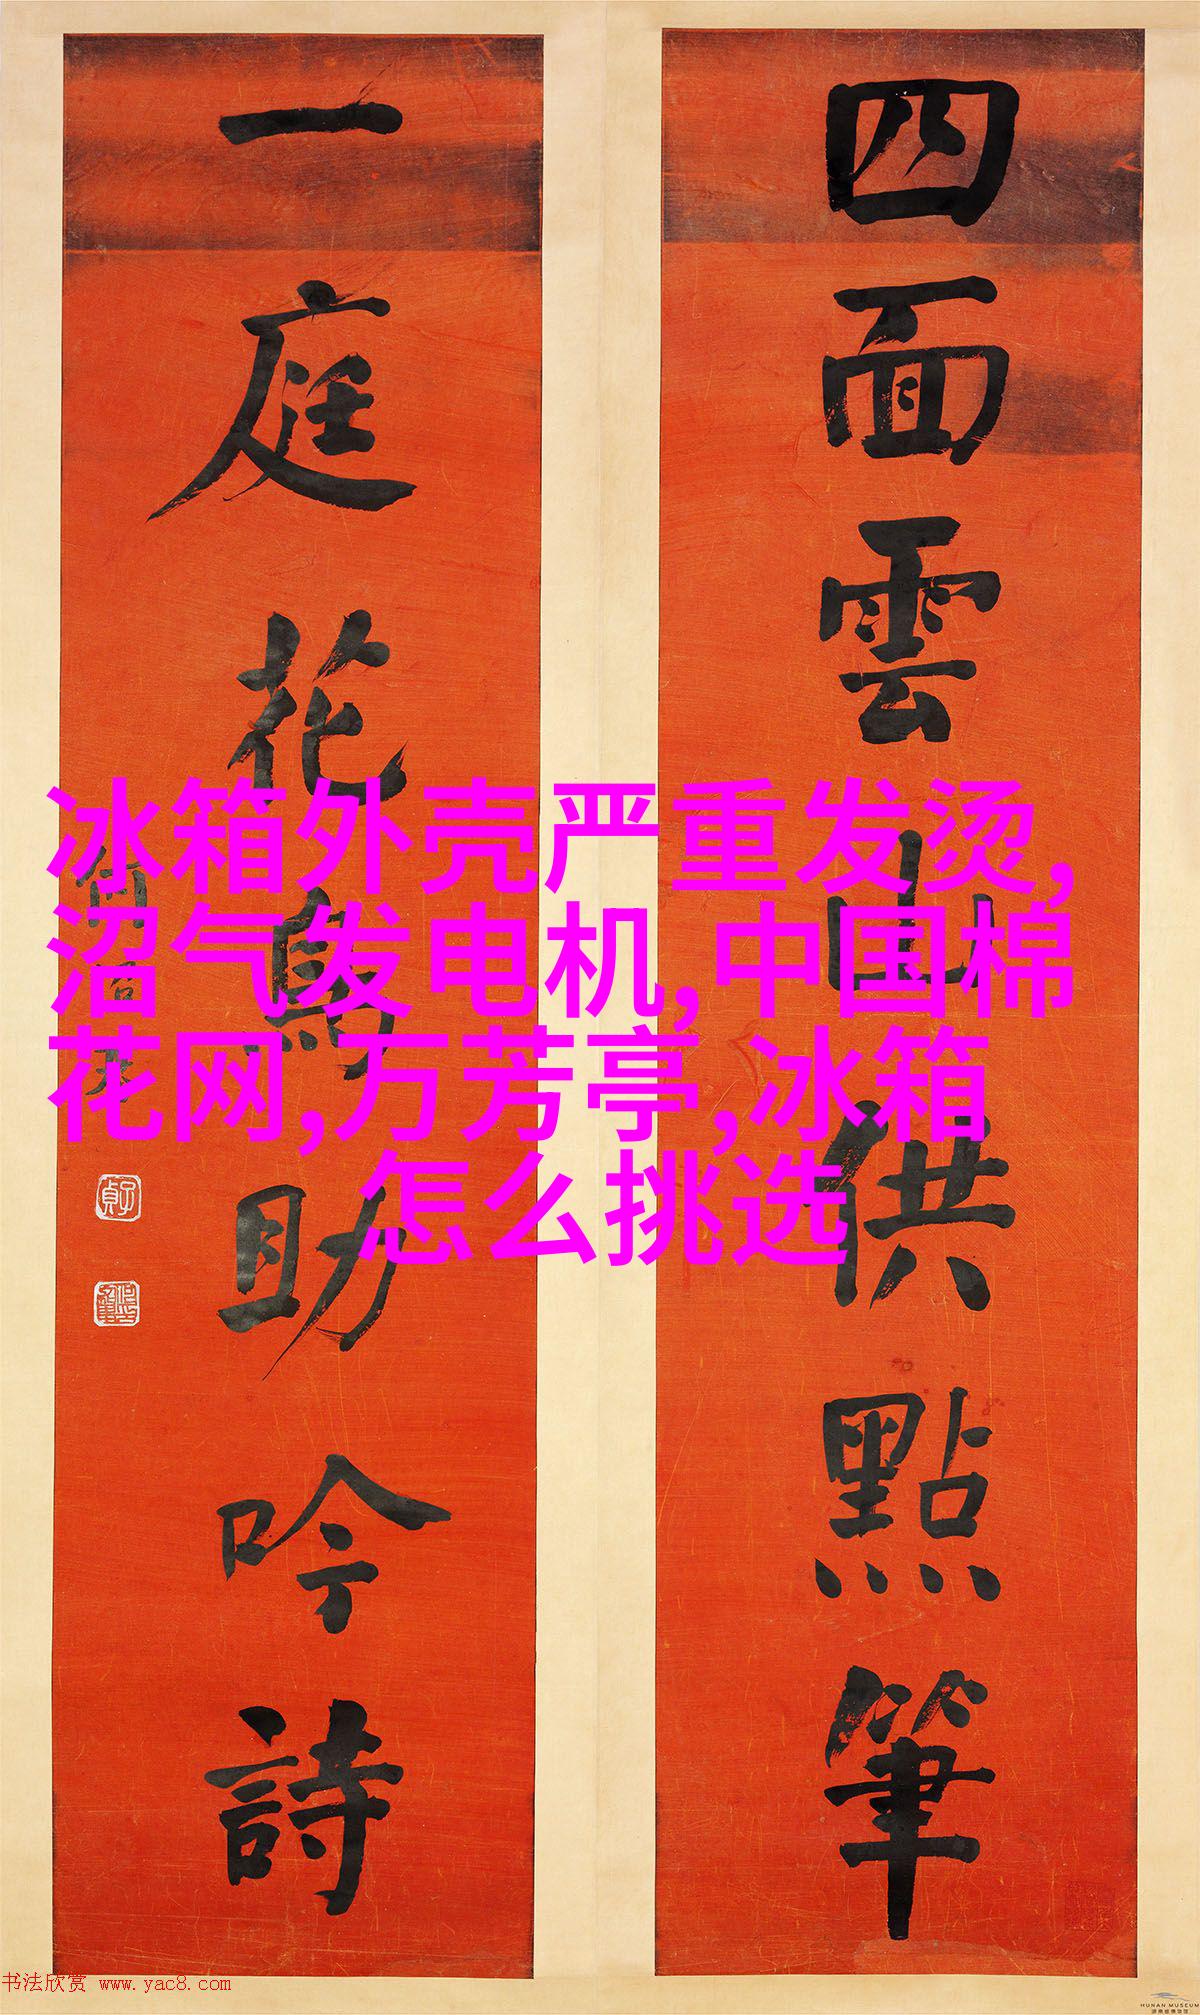 四面雲山供點筆
一庭花鳥助吟詩
冰箱外壳严重发烫,
沼气发电机,中国棉
花网,万芳亭,冰箱
怎么挑选
子貞
书法欣赏 www.yac8.com
HUNAN MUSEUM